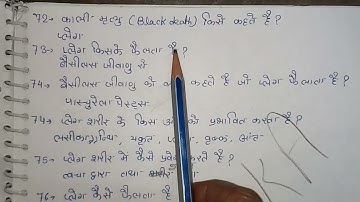 72- काली-मृत्यु (Black death) किसे कहते है?
प्लेग
73- प्लेग किसके फैलता है?
बैसीलस जीवाणु से
74- बैसीलस जीवाणु को क्या कहते है जो प्लेग फैलाता है?
पास्चुरेला पेस्टस
74- प्लेग शरीर के किस अंग को प्रभावित करता है?
लसीका ग्रन्थि, यकृत, वृक्क, आंत
75- प्लेग शरीर में कैसे प्रवेश करते है?
त्वचा द्वारा तथा
76- प्लेग कैसे फैलता है